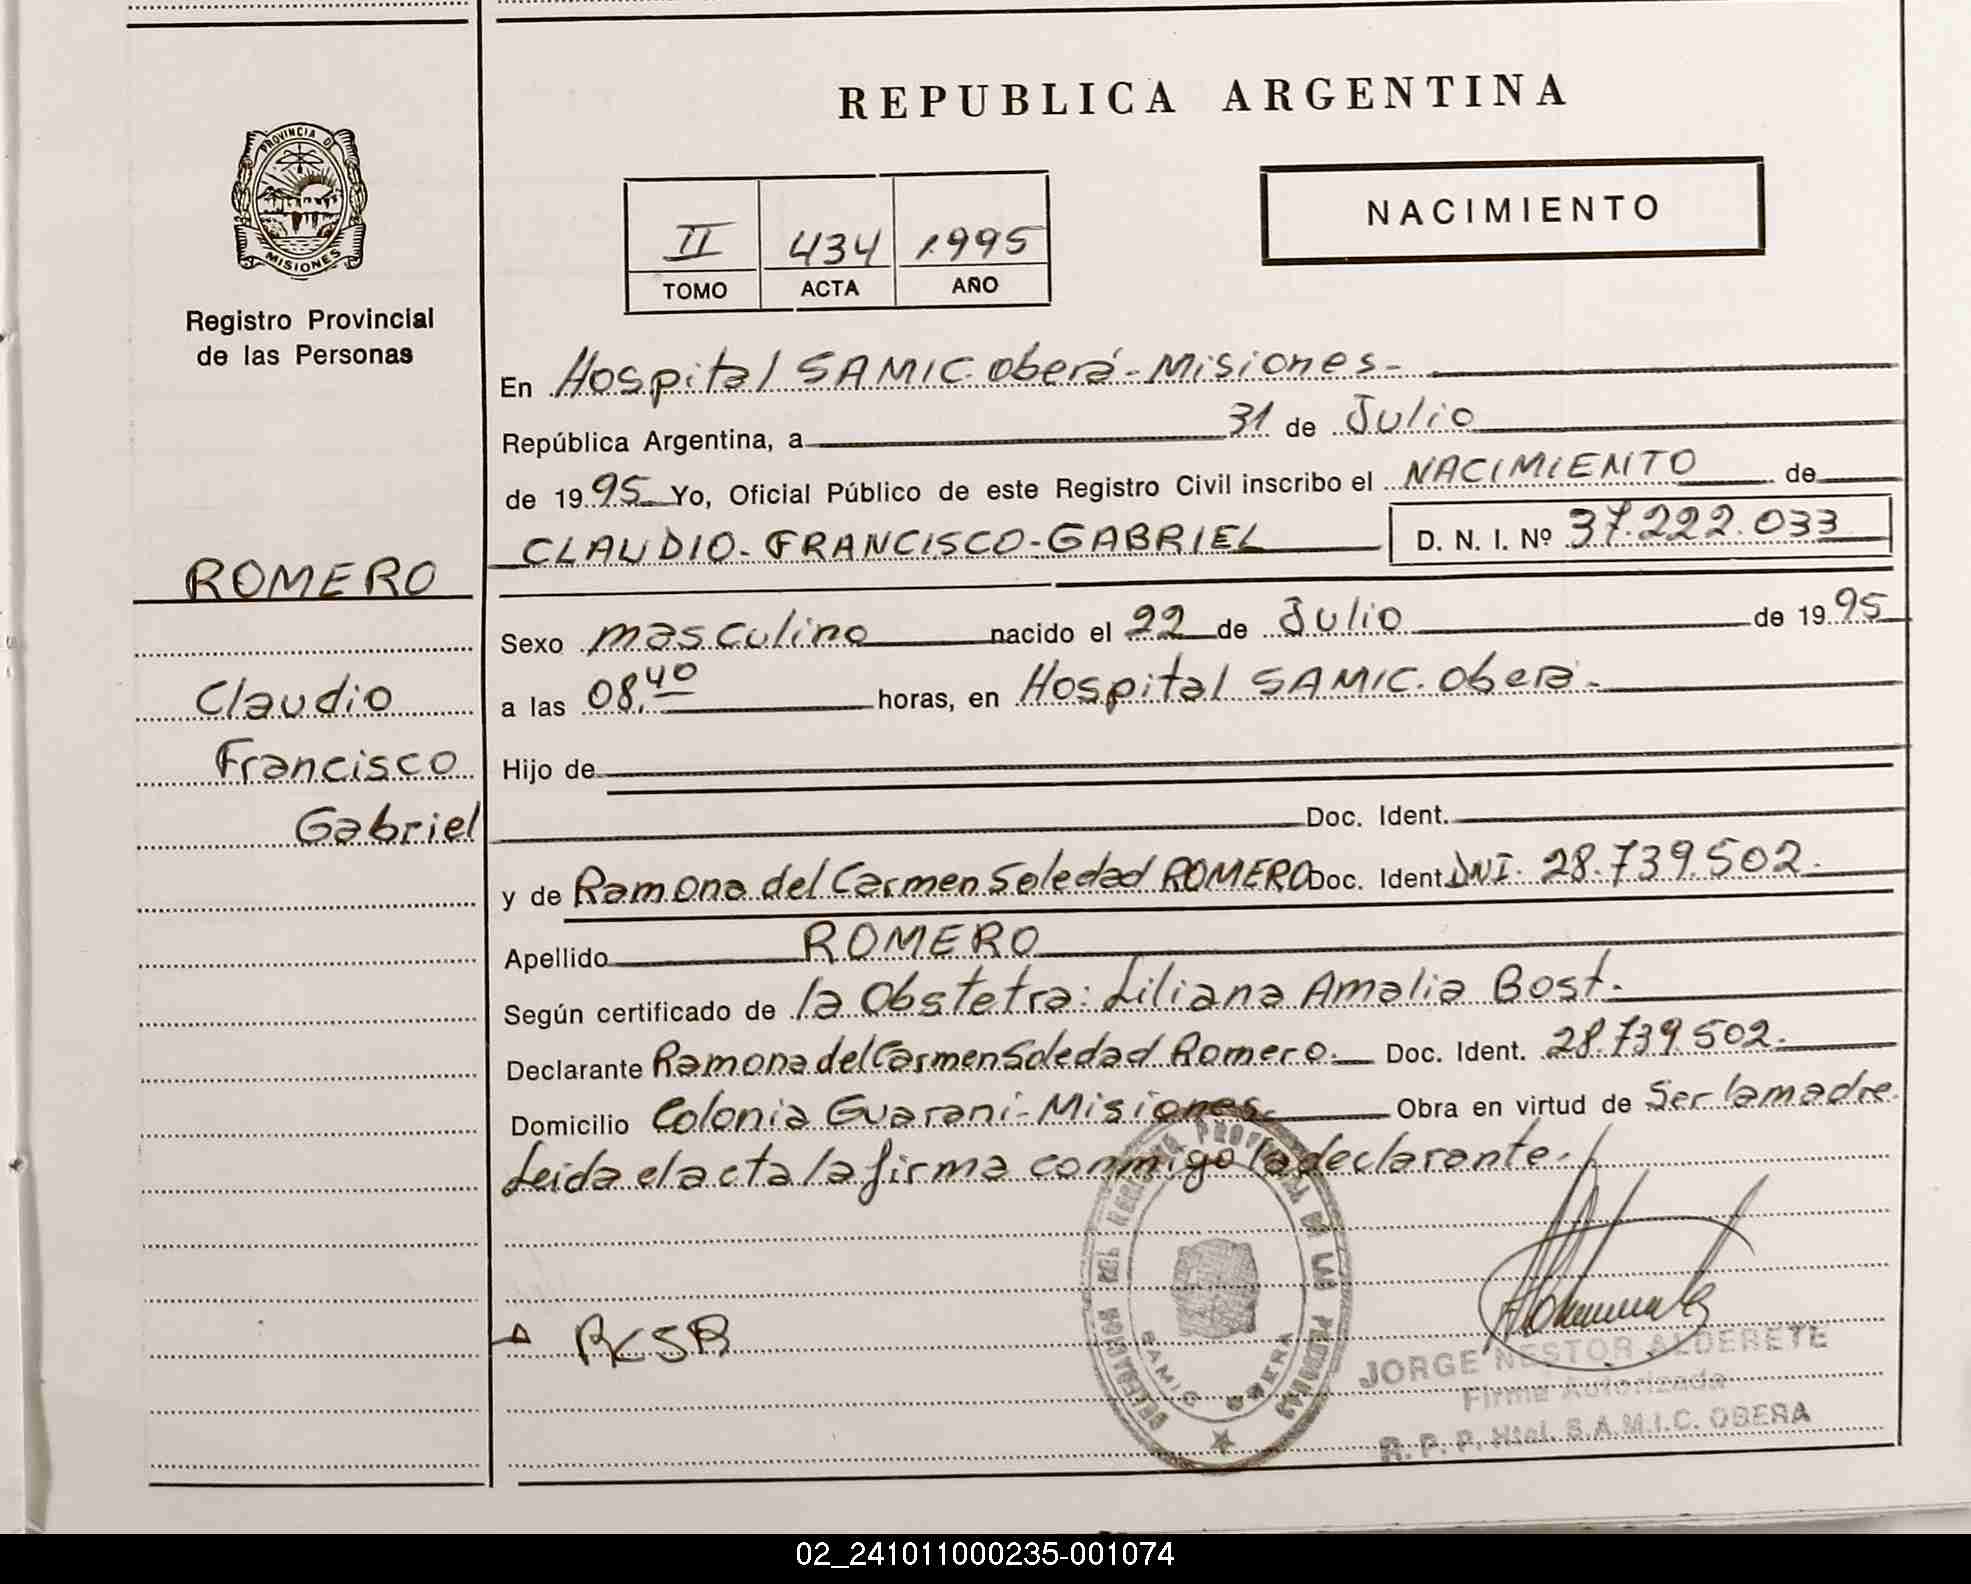 REPUBLICA ARGENTINA
PROVINCIA DE
MISIONES
Registro Provincial
de las Personas
II 434 1995
TOMO ACTA AÑO
NACIMIENTO
ROMERO
Claudio
Francisco
Gabriel
En Hospital SAMIC. Oberá - Misiones -
República Argentina, a 31 de Julio
de 1995 Yo, Oficial Público de este Registro Civil inscribo el NACIMIENTO de
CLAUDIO - FRANCISCO - GABRIEL D. N. I. Nº 37.222.033
Sexo masculino nacido el 22 de Julio de 1995
a las 08,40 horas, en Hospital SAMIC. Oberá -
Hijo de
Doc. Ident.
y de Ramona del Carmen Soledad ROMERO Doc. Ident. DNI. 28.739.502.
Apellido ROMERO
Según certificado de la Obstetra: Liliana Amalia Bost.
Declarante Ramona del Carmen Soledad Romero. Doc. Ident. 28.739.502.
Domicilio Colonia Guaraní - Misiones. Obra en virtud de Ser la madre.
Leida el acta la firma conmigo la declarante.
RCSR
SAMIC OBERA
JORGE NESTOR ALDERETE
Firma Autorizada
R. P. P. Htal. S.A.M.I.C. OBERA
02_241011000235-001074